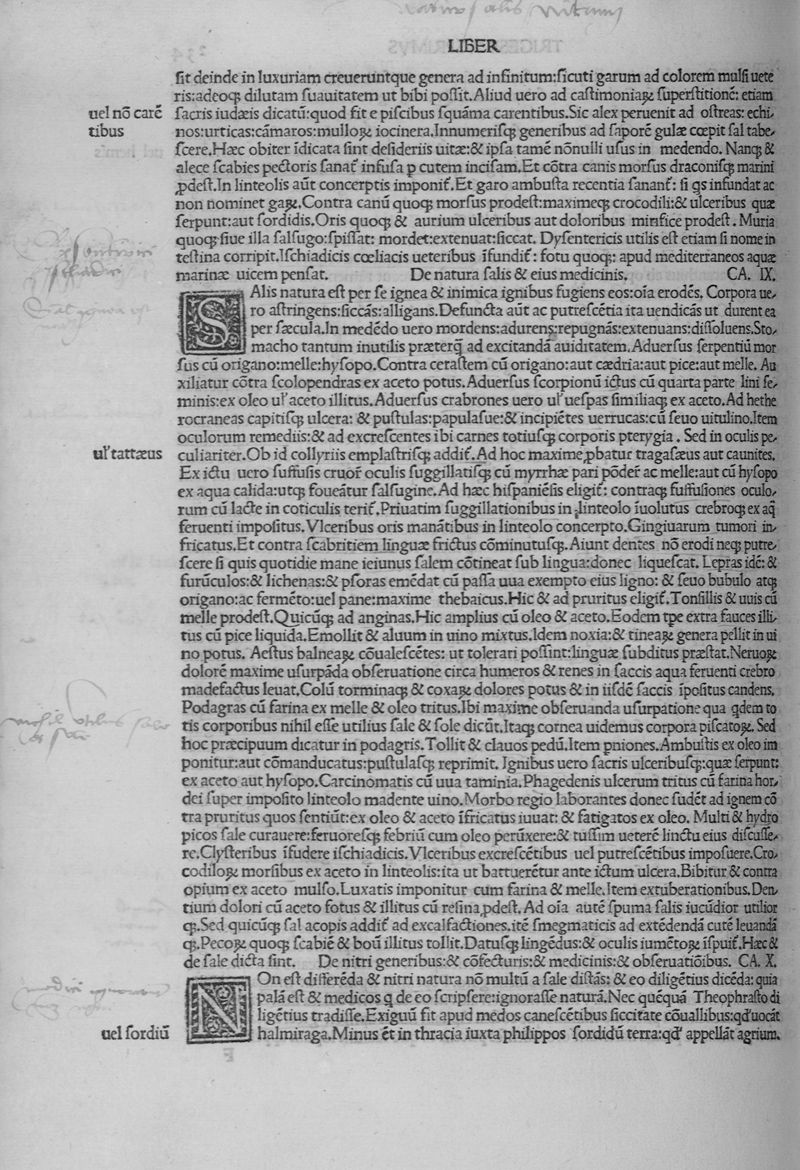 LIBER
sit deinde in luxuriam creueruntque genera ad infinitum:sicuti garum ad colorem mulsi uete
ris:adeoqꝫ dilutam suauitatem ut bibi possit.Aliud uero ad castimoniaꝝ superstitionē: etiam
uel nō carē
tibus
sacris iudæis dicatū:quod fit e piscibus squāma carentibus.Sic alex peruenit ad ostreas: echi,
nos:urticas:cāmaros:mulloꝝ iocinera.Innumerisqꝫ generibus ad saporē gulæ cœpit sal tabe,
scere.Hæc obiter īdicata sint desideriis uitæ:& ipsa tamē nōnulli usus in medendo. Nanqꝫ &
alece scabies pectoris sanat᷑ infusa p cutem incisam.Et cōtra canis morsus draconisqꝫ marini
ꝓdest.In linteolis aūt concerptis imponit᷑.Et garo ambusta recentia sanant᷑: si qs infundat ac
non nominet gaꝝ.Contra canū quoqꝫ morsus prodest:maximeqꝫ crocodili:& ulceribus quæ
serpunt:aut sordidis.Oris quoqꝫ & aurium ulceribus aut doloribus mirifice prodest. Muria
quoqꝫ siue illa salsugo:spissat: mordet:extenuat:siccat. Dysentericis utilis est etiam si nome in
testina corripit.Ischiadicis cœliacis ueteribus īfundit᷑: fotu quoqꝫ: apud mediterraneos aquæ
marinæ uicem pensat. De natura salis & eius medicinis. CA. IX.
SAlis natura est per se ignea & inimica ignibus fugiens eos:oīa erodēs. Corpora ue,
ro astringens:siccās:alligans.Defuncta aūt ac putrescētia ita uendicās ut durent ea
per sæcula.In medēdo uero mordens:adurens:repugnās:extenuans:dissoluens.Sto,
macho tantum inutilis præterq̄ ad excitandā auiditatem.Aduersus serpentiū mor
sus cū origano:melle:hysopo.Contra cerastem cū origano:aut cædria:aut pice:aut melle. Au
xiliatur cōtra scolopendras ex aceto potus.Aduersus scorpionū ictus cū quarta parte lini se,
minis:ex oleo ul᷑ aceto illitus.Aduersus crabrones uero ul᷑ uespas similiaqꝫ ex aceto.Ad hethe
rocraneas capitisqꝫ ulcera: & pustulas:papulasue:& incipiētes uerrucas:cū seuo uitulino.Item
oculorum remediis:& ad excrescentes ibi carnes totiusqꝫ corporis pterygia. Sed in oculis pe,
ul᷑ tattæus
culiariter.Ob id collyriis emplastrisqꝫ addit᷑.Ad hoc maxime ꝓbatur tragasæus aut caunites.
Ex ictu uero suffusis cruor᷑ oculis suggillatisqꝫ cū myrrhæ pari pōder᷑ ac melle:aut cū hysopo
ex aqua calida:utqꝫ foueātur salsugine.Ad hæc hispaniēsis eligit᷑: contraqꝫ suffusiones oculo,
rum cū lacte in coticulis terit᷑.Priuatim suggillationibus in linteolo īuolutus crebroqꝫ ex aq̄
feruenti impositus.Vlceribus oris manātibus in linteolo concerpto.Gingiuarum tumori in,
fricatus.Et contra scabritiem linguæ frictus cōminutusqꝫ.Aiunt dentes nō erodi neqꝫ putre,
scere si quis quotidie mane ieiunus salem cōtineat sub lingua:donec liquescat. Lepras idē: &
furūculos:& lichenas:& psoras emēdat cū passa uua exempto eius ligno: & seuo bubulo atqꝫ
origano:ac fermēto:uel pane:maxime thebaicus.Hic & ad pruritus eligit᷑.Tonsillis & uuis cū
melle prodest.Quicūqꝫ ad anginas.Hic amplius cū oleo & aceto.Eodem tpe extra fauces illi,
tus cū pice liquida.Emollit & aluum in uino mixtus.Idem noxia:& tineaꝝ genera pellit in ui
no potus. Aestus balneaꝝ cōualescētes: ut tolerari possint:linguæ subditus præstat.Neruoꝝ
dolorē maxime usurpāda obseruatione circa humeros & renes in saccis aqua feruenti crebro
madefactus leuat.Colū torminaqꝫ & coxaꝝ dolores potus & in iisdē saccis īpositus candens.
Podagras cū farina ex melle & oleo tritus.Ibi maxime obseruanda usurpatione qua qdem to
tis corporibus nihil esse utilius sale & sole dicūt.Itaqꝫ cornea uidemus corpora piscatoꝝ. Sed
hoc præcipuum dicatur in podagris.Tollit & clauos pedū.Item pniones.Ambustis ex oleo im
ponitur:aut cōmanducatus:pustulasqꝫ reprimit. Ignibus uero sacris ulceribusqꝫ:quæ serpunt:
ex aceto aut hysopo.Carcinomatis cū uua taminia.Phagedenis ulcerum tritus cū farina hor,
dei super imposito linteolo madente uino.Morbo regio laborantes donec sudēt ad ignem cō
tra pruritus quos sentiūt:ex oleo & aceto īfricatus iuuat: & fatigatos ex oleo. Multi & hydro
picos sale curauere:feruoresqꝫ febriū cum oleo perūxere:& tussim ueterē linctu eius discusse,
re.Clysteribus īfudere ischiadicis.Vlceribus excrescētibus uel putrescētibus imposuere.Cro,
codiloꝝ morsibus ex aceto in linteolis:ita ut battuerētur ante ictum ulcera.Bibitur & contra
opium ex aceto mulso.Luxatis imponitur cum farina & melle.Item extuberationibus.Den,
tium dolori cū aceto fotus & illitus cū resina ꝓdest. Ad oīa autē spuma salis iucūdior utilior
qꝫ.Sed quicūqꝫ sal acopis addit᷑ ad excalfactiones.itē smegmaticis ad extēdendā cutē leuandā
qꝫ.Pecoꝝ quoqꝫ scabiē & boū illitus tollit.Daturqꝫ lingēdus:& oculis iumētoꝝ īspuit᷑.Hæc &
de sale dicta sint. De nitri generibus:& cōfecturis:& medicinis:& obseruatiōibus. CA. X.
NOn est differēda & nitri natura nō multū a sale distās: & eo diligētius dicēda: quia
palā est & medicos q de eo scripsere:ignorasse naturā.Nec quēquā Theophrasto di
ligētius tradisse.Exiguū fit apud medos canescētibus siccitate cōuallibus:qđ uocāt
uel sordiū
halmiraga.Minus ēt in thracia iuxta philippos sordidū terra:qđ appellāt agrium.